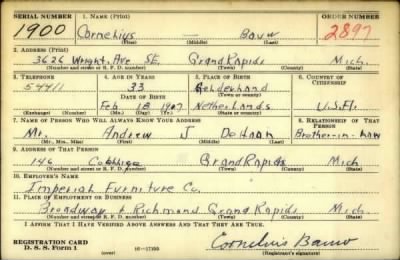 SERIAL NUMBER 1. NAME (Print) ORDER NUMBER
1900 Cornelius — Bouw 2897
(First) (Middle) (Last)
2. ADDRESS (Print)
3626 Wright Ave SE. Grand Rapids Mich.
(Number and street or R. F. D. number) (Town) (County) (State)
3. TELEPHONE 4. AGE IN YEARS 5. PLACE OF BIRTH 6. COUNTRY OF CITIZENSHIP
54411 33 Gelderland
DATE OF BIRTH (Town or county)
Feb 18 1907 Netherlands U.S.A.
(Exchange) (Number) (Mo.) (Day) (Yr.) (State or country)
7. NAME OF PERSON WHO WILL ALWAYS KNOW YOUR ADDRESS 8. RELATIONSHIP OF THAT PERSON
Mr. Andrew J DeHaan Brother-in-law
(Mr., Mrs., Miss) (First) (Middle) (Last)
9. ADDRESS OF THAT PERSON
146 Grand Rapids Mich
(Number and street or R. F. D. number) (Town) (County) (State)
10. EMPLOYER'S NAME
Imperial Furniture Co.
11. PLACE OF EMPLOYMENT OR BUSINESS
Broadway & Richmond Grand Rapids Mich.
(Number and street or R. F. D. number) (Town) (County) (State)
I AFFIRM THAT I HAVE VERIFIED ABOVE ANSWERS AND THAT THEY ARE TRUE.
REGISTRATION CARD
D. S. S. Form 1 16—17105 Cornelius Bouw
(Registrant's signature)